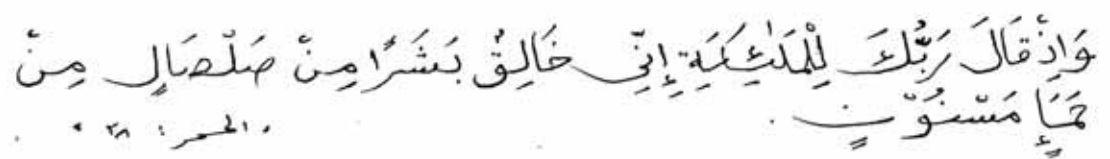 وَاِذْ قَالَ رَبُّكَ لِلْمَلٰئِكَةِ إِنِّي خَالِقٌ بَشَرًا مِنْ صَلْصَالٍ مِنْ
حَمَإٍ مَسْنُوْنٍ .
، الحجر : ٢٨ ،